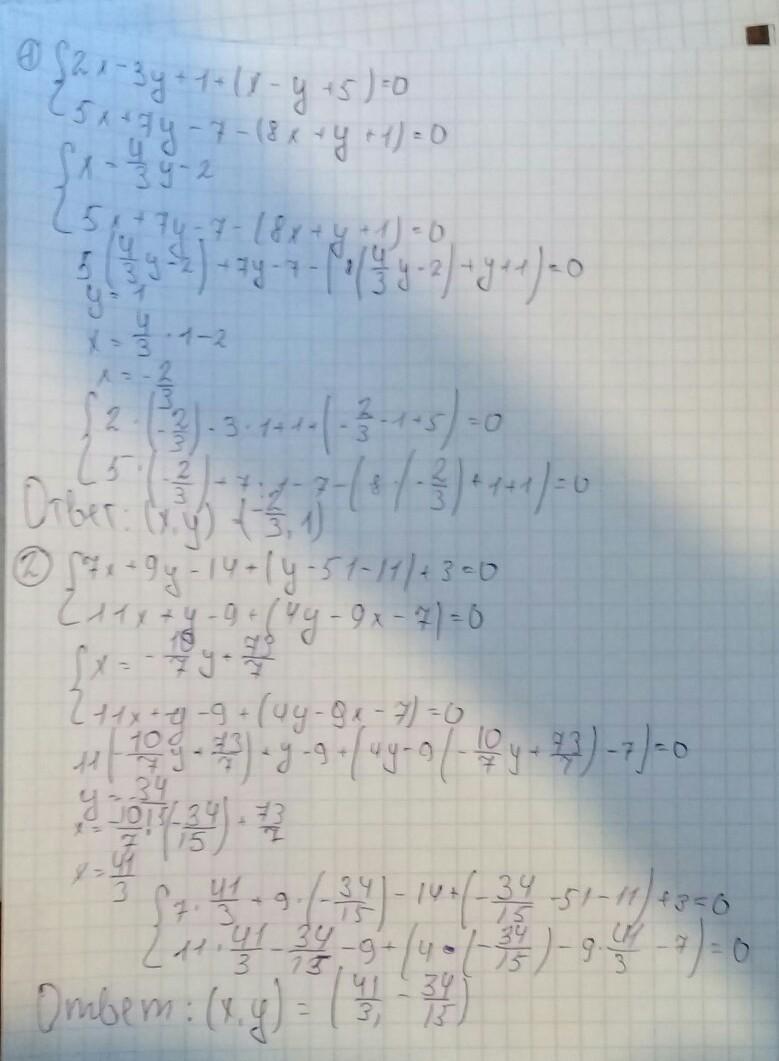 ① { 2x - 3y + 1 + (x - y + 5) = 0
{ 5x + 7y - 7 - (8x + y + 1) = 0
{ x = 4/3 y - 2
{ 5x + 7y - 7 - (8x + y + 1) = 0
5 (4/3 y - 2) + 7y - 7 - (8 (4/3 y - 2) + y + 1) = 0
y = 1
x = 4/3 · 1 - 2
x = - 2/3
{ 2 · (- 2/3) - 3 · 1 + 1 + (- 2/3 - 1 + 5) = 0
{ 5 · (- 2/3) + 7 · 1 - 7 - (8 · (- 2/3) + 1 + 1) = 0
Ответ: (x, y) = (- 2/3, 1)
② { 7x + 9y - 14 + (y - 51 - 11) + 3 = 0
{ 11x + y - 9 + (4y - 9x - 7) = 0
{ x = - 10/7 y + 73/7
{ 11x + y - 9 + (4y - 9x - 7) = 0
11 (- 10/7 y + 73/7) + y - 9 + (4y - 9 (- 10/7 y + 73/7) - 7) = 0
y = - 34/15
x = - 10/7 · (- 34/15) + 73/7
x = 41/3
{ 7 · 41/3 + 9 · (- 34/15) - 14 + (- 34/15 - 51 - 11) + 3 = 0
{ 11 · 41/3 - 34/15 - 9 + (4 · (- 34/15) - 9 · 41/3 - 7) = 0
Ответ: (x, y) = (41/3, - 34/15)